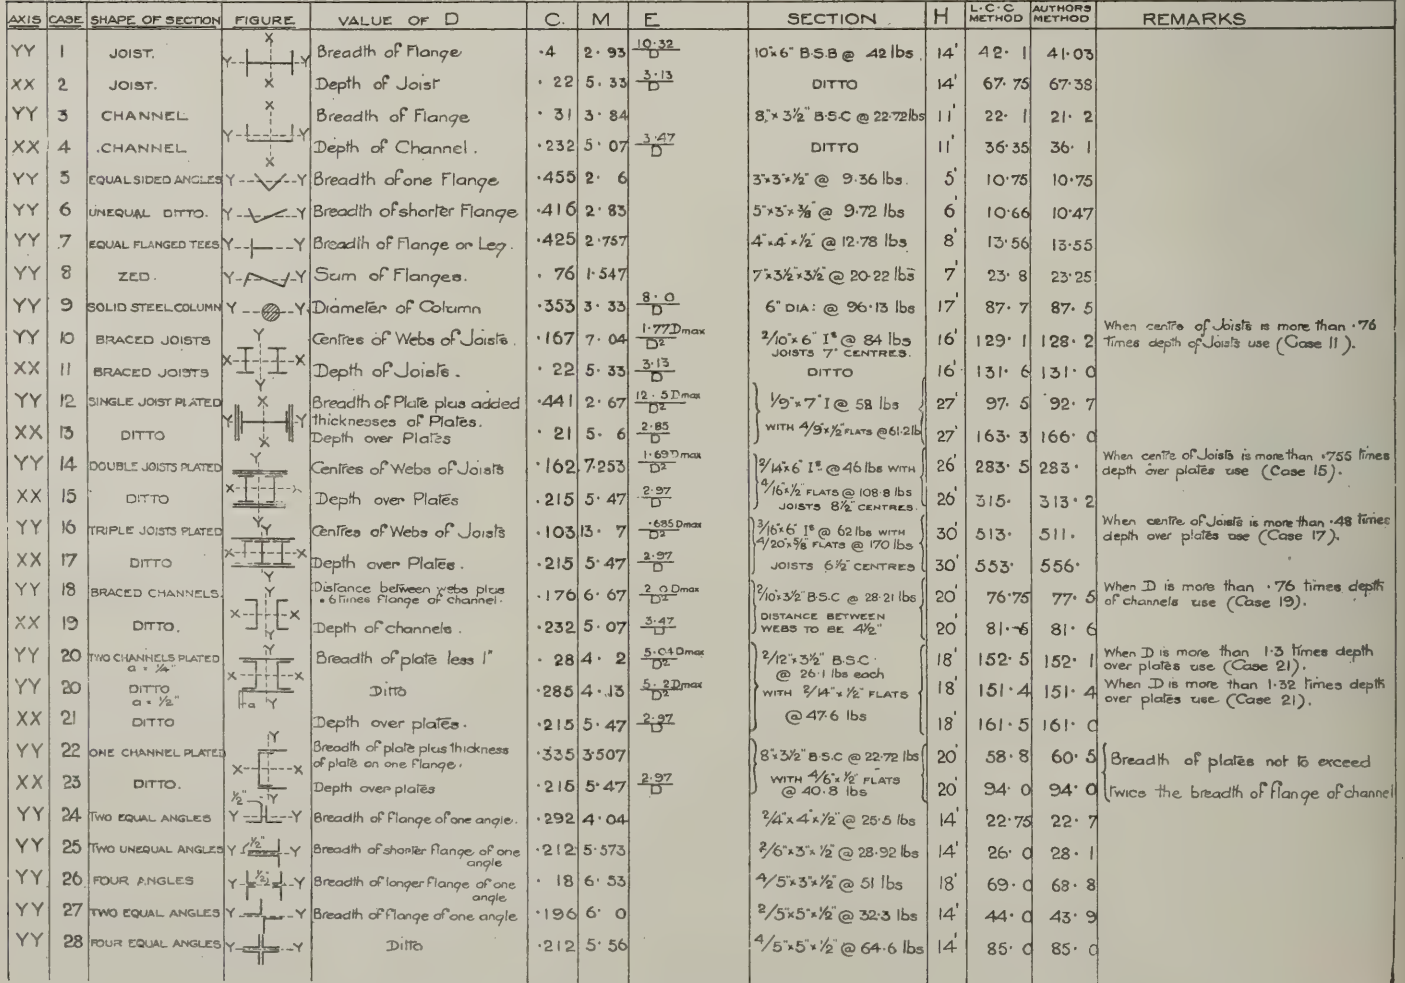 AXIS CASE SHAPE OF SECTION FIGURE VALUE OF D C. M E SECTION. H L.C.C METHOD AUTHORS METHOD REMARKS
YY 1 JOIST. Breadth of Flange ·4 2·93 10·32/D 10"x6" B.S.B @ 42 lbs. 14' 42·1 41·03
XX 2 JOIST. Depth of Joist ·22 5·33 3·13/D DITTO 14' 67·75 67·38
YY 3 CHANNEL Breadth of Flange ·31 3·84 8"x 3½" B.S.C @ 22·72lbs 11' 22·1 21·2
XX 4 CHANNEL Depth of Channel. ·232 5·07 3·47/D DITTO 11' 36·35 36·1
YY 5 EQUAL SIDED ANGLES Breadth of one Flange ·455 2·6 3"x3"x½" @ 9·36 lbs. 5' 10·75 10·75
YY 6 UNEQUAL DITTO. Breadth of shorter Flange ·416 2·83 5"x3"x⅜ @ 9·72 lbs 6' 10·66 10·47
YY 7 EQUAL FLANGED TEES Breadth of Flange or Leg. ·425 2·757 4"x4"x½" @ 12·78 lbs 8' 13·56 13·55
YY 8 ZED. Sum of Flanges. ·76 1·547 7"x3½"x3½" @ 20·22 lbs 7' 23·8 23·25
YY 9 SOLID STEEL COLUMN Diameter of Column ·353 3·33 8·0/D 6" DIA: @ 96·13 lbs 17' 87·7 87·5
YY 10 BRACED JOISTS Centres of Webs of Joists. ·167 7·04 1·77Dmax/D² 2/10"x6" Is @ 84 lbs JOISTS 7" CENTRES. 16' 129·1 128·2 When centre of Joists is more than ·76 times depth of Joists use (Case 11).
XX 11 BRACED JOISTS Depth of Joists. ·22 5·33 3·13/D DITTO 16' 131·6 131·0
YY 12 SINGLE JOIST PLATED Breadth of Plate plus added thicknesses of Plates. ·441 2·67 12·5Dmax/D² 1/9"x7" I @ 58 lbs 27' 97·5 92·7
XX 13 DITTO Depth over Plates ·21 5·6 2·85/D WITH 4/9"x½" FLATS @61·2lb 27' 163·3 166·0
YY 14 DOUBLE JOISTS PLATED Centres of Webs of Joists ·162 7·253 1·69Dmax/D² 2/14"x6" Is @ 46 lbs WITH 26' 283·5 283· When centre of Joists is more than ·755 times depth over plates use (Case 15).
XX 15 DITTO Depth over Plates ·215 5·47 2·97/D 4/16"x½" FLATS @ 108·8 lbs JOISTS 8½" CENTRES. 26' 315· 313·2
YY 16 TRIPLE JOISTS PLATED Centres of Webs of Joists ·103 13·7 ·685Dmax/D² 3/16"x6" Is @ 62 lbs WITH 4/20"x⅝" FLATS @ 170 lbs 30' 513· 511· When centre of Joists is more than ·48 times depth over plates use (Case 17).
XX 17 DITTO Depth over Plates. ·215 5·47 2·97/D JOISTS 6½" CENTRES 30' 553· 556·
YY 18 BRACED CHANNELS. Distance between webs plus ·6 times flange of channel. ·176 6·67 2·0Dmax/D² 2/10"x3½" B.S.C @ 28·21 lbs 20' 76·75 77·5 When D is more than ·76 times depth of channels use (Case 19).
XX 19 DITTO. Depth of channels. ·232 5·07 3·47/D DISTANCE BETWEEN WEBS TO BE 4½" 20' 81·6 81·6
YY 20 TWO CHANNELS PLATED a = ¼" Breadth of plate less 1" ·28 4·2 5·04Dmax/D² 2/12"x3½" B.S.C. @ 26·1 lbs each 18' 152·5 152·1 When D is more than 1·3 times depth over plates use (Case 21).
YY 20 DITTO a = ½" Ditto ·285 4·13 5·2Dmax/D² WITH 2/14"x½" FLATS 18' 151·4 151·4 When D is more than 1·32 times depth over plates use (Case 21).
XX 21 DITTO Depth over plates. ·215 5·47 2·97/D @ 47·6 lbs 18' 161·5 161·0
YY 22 ONE CHANNEL PLATED Breadth of plate plus thickness of plate on one flange. ·335 3·507 8"x3½" B.S.C @ 22·72 lbs 20' 58·8 60·5 Breadth of plates not to exceed
XX 23 DITTO. Depth over plates ·215 5·47 2·97/D WITH 4/6"x½" FLATS @ 40·8 lbs 20' 94·0 94·0 twice the breadth of flange of channel
YY 24 TWO EQUAL ANGLES ½" Breadth of flange of one angle. ·292 4·04 2/4"x4"x½" @ 25·5 lbs 14' 22·75 22·7
YY 25 TWO UNEQUAL ANGLES ½" Breadth of shorter flange of one angle ·212 5·573 2/6"x3"x½" @ 28·92 lbs 14' 26·0 28·1
YY 26 FOUR ANGLES ½" Breadth of longer flange of one angle ·18 6·53 4/5"x3"x½" @ 51 lbs 18' 69·0 68·8
YY 27 TWO EQUAL ANGLES Breadth of flange of one angle ·196 6·0 2/5"x5"x½" @ 32·3 lbs 14' 44·0 43·9
YY 28 FOUR EQUAL ANGLES Ditto ·212 5·56 4/5"x5"x½" @ 64·6 lbs 14' 85·0 85·0